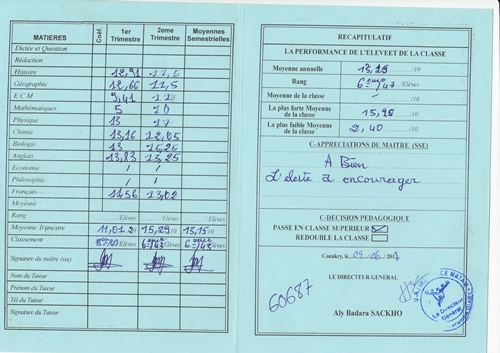 MATIERES Coéf. 1er Trimestre 2eme Trimestre Moyennes Semestrielles
Dictée et Question
Rédaction
Histoire 12,91 11,5
Géographie 12,66 11,5
E C M 9,41
Mathématiques 5 10
Physique 13 17
Chimie 13,16 12,05
Biologie 13 15,25
Anglais 13,83 13,25
Economie / /
Philosophie / /
Français 11,56 13,02
Moyenne
Rang /Elèves /Elèves /Elèves
Moyenne Trimestre 11,01 15,29/10 13,15/10
Classement 6ème/43 6ème/43
Signature du maître (sse)
Nom du Tuteur
Prénom du Tuteur
Tél du Tuteur
Signature du Tuteur
RECAPITULATIF
LA PERFORMANCE DE L'ELEVE ET DE LA CLASSE
Moyenne annuelle /10
Rang 6ème/43 Elèves
Moyenne de la classe /10
La plus forte Moyenne de la classe 15,95 /10
La plus faible Moyenne de la classe 2,40 /10
C-APPRECIATIONS DU MAITRE (SSE)
A Bien
L'eleve à encourager
C-DECISION PEDAGOGIQUE
PASSE EN CLASSE SUPERIEUR
REDOUBLE LA CLASSE
Conakry, le 09/06/201
LE DIRECTEUR GENERAL
60687
Aly Badara SACKHO
Le Directeur Général